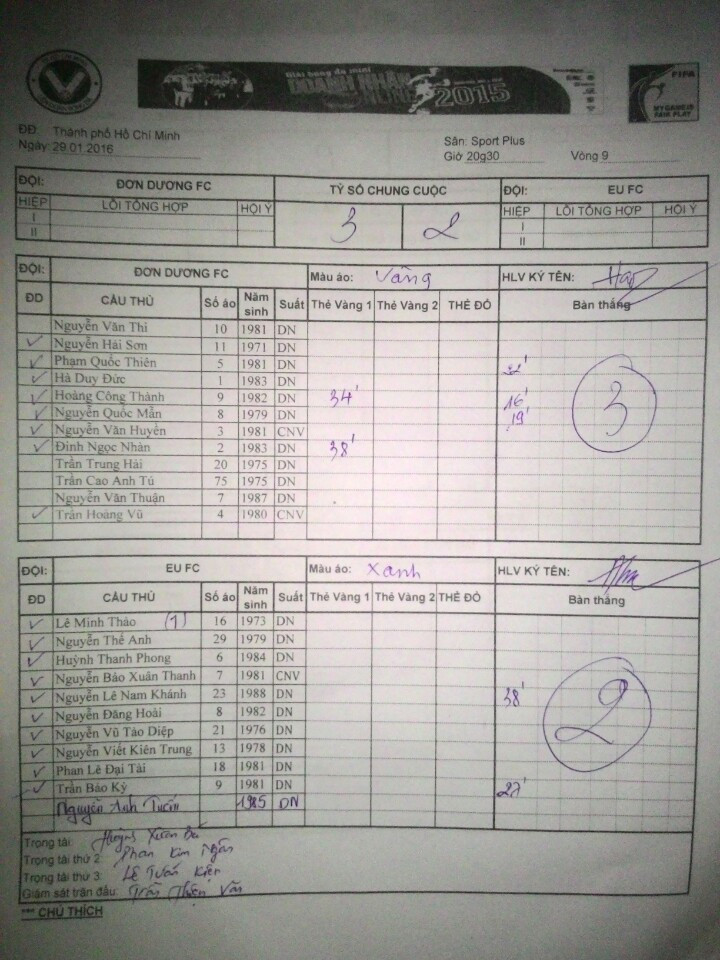 Giải bóng đá mini
DOANH NHÂN
2015
FIFA
MY GAME IS
FAIR PLAY
ĐĐ: Thành phố Hồ Chí Minh
Ngày: 29.01.2016
Sân: Sport Plus
Giờ 20g30 Vòng 9
ĐỘI: ĐƠN DƯƠNG FC TỶ SỐ CHUNG CUỘC ĐỘI: EU FC
HIỆP LỖI TỔNG HỢP HỘI Ý 3 2 HIỆP LỖI TỔNG HỢP HỘI Ý
I I
II II
ĐỘI: ĐƠN DƯƠNG FC Màu áo: Vàng HLV KÝ TÊN:
ĐD CẦU THỦ Số áo Năm sinh Suất Thẻ Vàng 1 Thẻ Vàng 2 THẺ ĐỎ Bàn thắng
Nguyễn Văn Thi 10 1981 DN
✓ Nguyễn Hải Sơn 11 1971 DN
✓ Phạm Quốc Thiên 5 1981 DN
✓ Hà Duy Đức 1 1983 DN
✓ Hoàng Công Thành 9 1982 DN 34' 16'
✓ Nguyễn Quốc Mẫn 8 1979 DN 19'
✓ Nguyễn Văn Huyền 3 1981 CNV
✓ Đinh Ngọc Nhân 2 1983 DN 38'
Trần Trung Hải 20 1975 DN
Trần Cao Anh Tú 75 1975 DN
Nguyễn Văn Thuận 7 1987 DN
✓ Trần Hoàng Vũ 4 1980 CNV
3
ĐỘI: EU FC Màu áo: Xanh HLV KÝ TÊN:
ĐD CẦU THỦ Số áo Năm sinh Suất Thẻ Vàng 1 Thẻ Vàng 2 THẺ ĐỎ Bàn thắng
✓ Lê Minh Thảo (1) 16 1973 DN
✓ Nguyễn Thế Anh 29 1979 DN
✓ Huỳnh Thanh Phong 6 1984 DN
✓ Nguyễn Bảo Xuân Thanh 7 1981 CNV
✓ Nguyễn Lê Nam Khánh 23 1988 DN 38'
✓ Nguyễn Đăng Hoài 8 1982 DN
✓ Nguyễn Vũ Tào Diệp 21 1976 DN
✓ Nguyễn Viết Kiên Trung 13 1978 DN
✓ Phan Lê Đại Tài 18 1981 DN
✓ Trần Bảo Kỳ 9 1981 DN
Nguyễn Anh Tuấn 1985 DN
2
Trọng tài: Huỳnh Xuân
Trọng tài thứ 2: Phan Kim Ngân
Trọng tài thứ 3: Lê Tuấn Kiện
Giám sát trận đấu: Trần Thiện Văn
*** CHÚ THÍCH